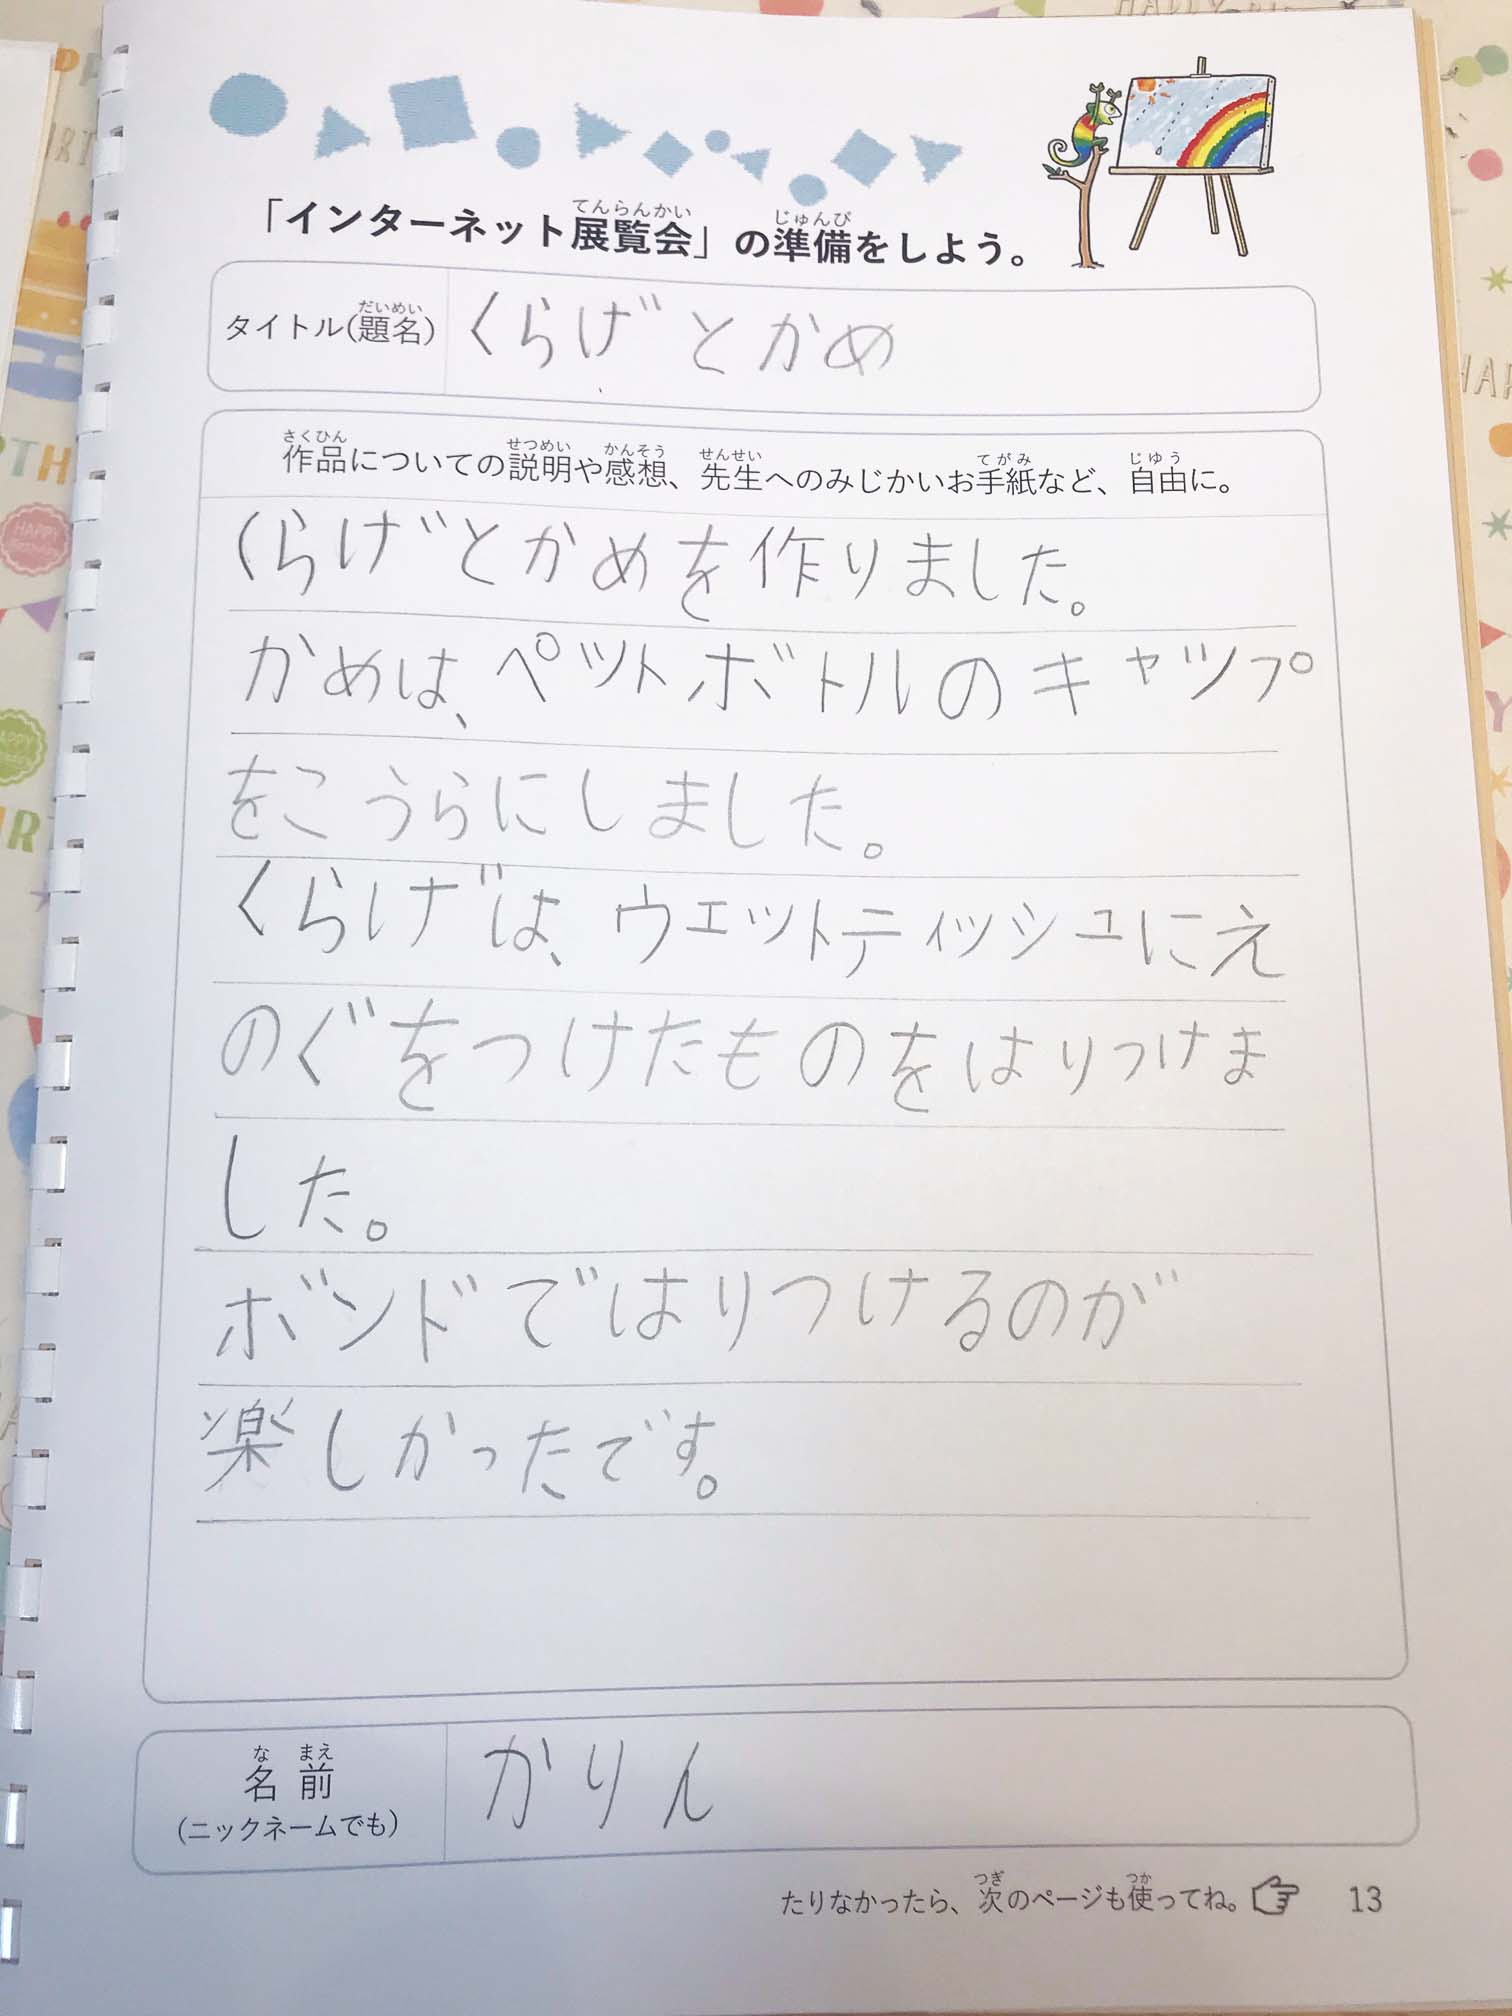 「インターネット展覧会」の準備をしよう。
てんらんかい
じゅんび
タイトル(題名)
だいめい
くらげとかめ
作品についての説明や感想、先生へのみじかいお手紙など、自由に。
さくひん
せつめい
かんそう
せんせい
てがみ
じゆう
くらげとかめを作りました。
かめは、ペットボトルのキャップ
をこうらにしました。
くらげは、ウエットティッシュにえ
のぐをつけたものをはりつけま
した。
ボンドではりつけるのが
楽しかったです。
な まえ
名前
(ニックネームでも)
かりん
たりなかったら、次のページも使ってね。
つぎ
つか
13